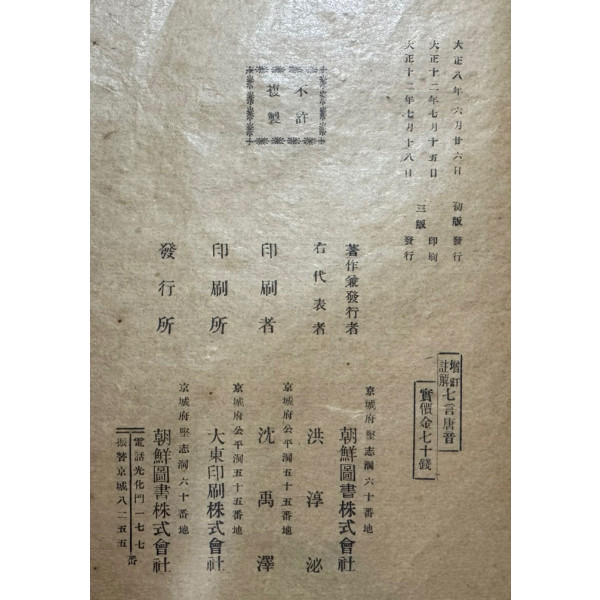 大正八年六月廿六日 初版發行
大正十二年七月十五日 三版印刷
大正十二年七月十八日 發行
不許
複製
增訂
註解
七言唐音
實價金七十錢
京城府堅志洞六十番地
著作兼發行者 朝鮮圖書株式會社
右代表者 洪淳泌
京城府公平洞五十五番地
印刷者 沈禹澤
京城府公平洞五十五番地
印刷所 大東印刷株式會社
京城府堅志洞六十番地
發行所 朝鮮圖書株式會社
電話光化門一七七番
振替京城八二五五番